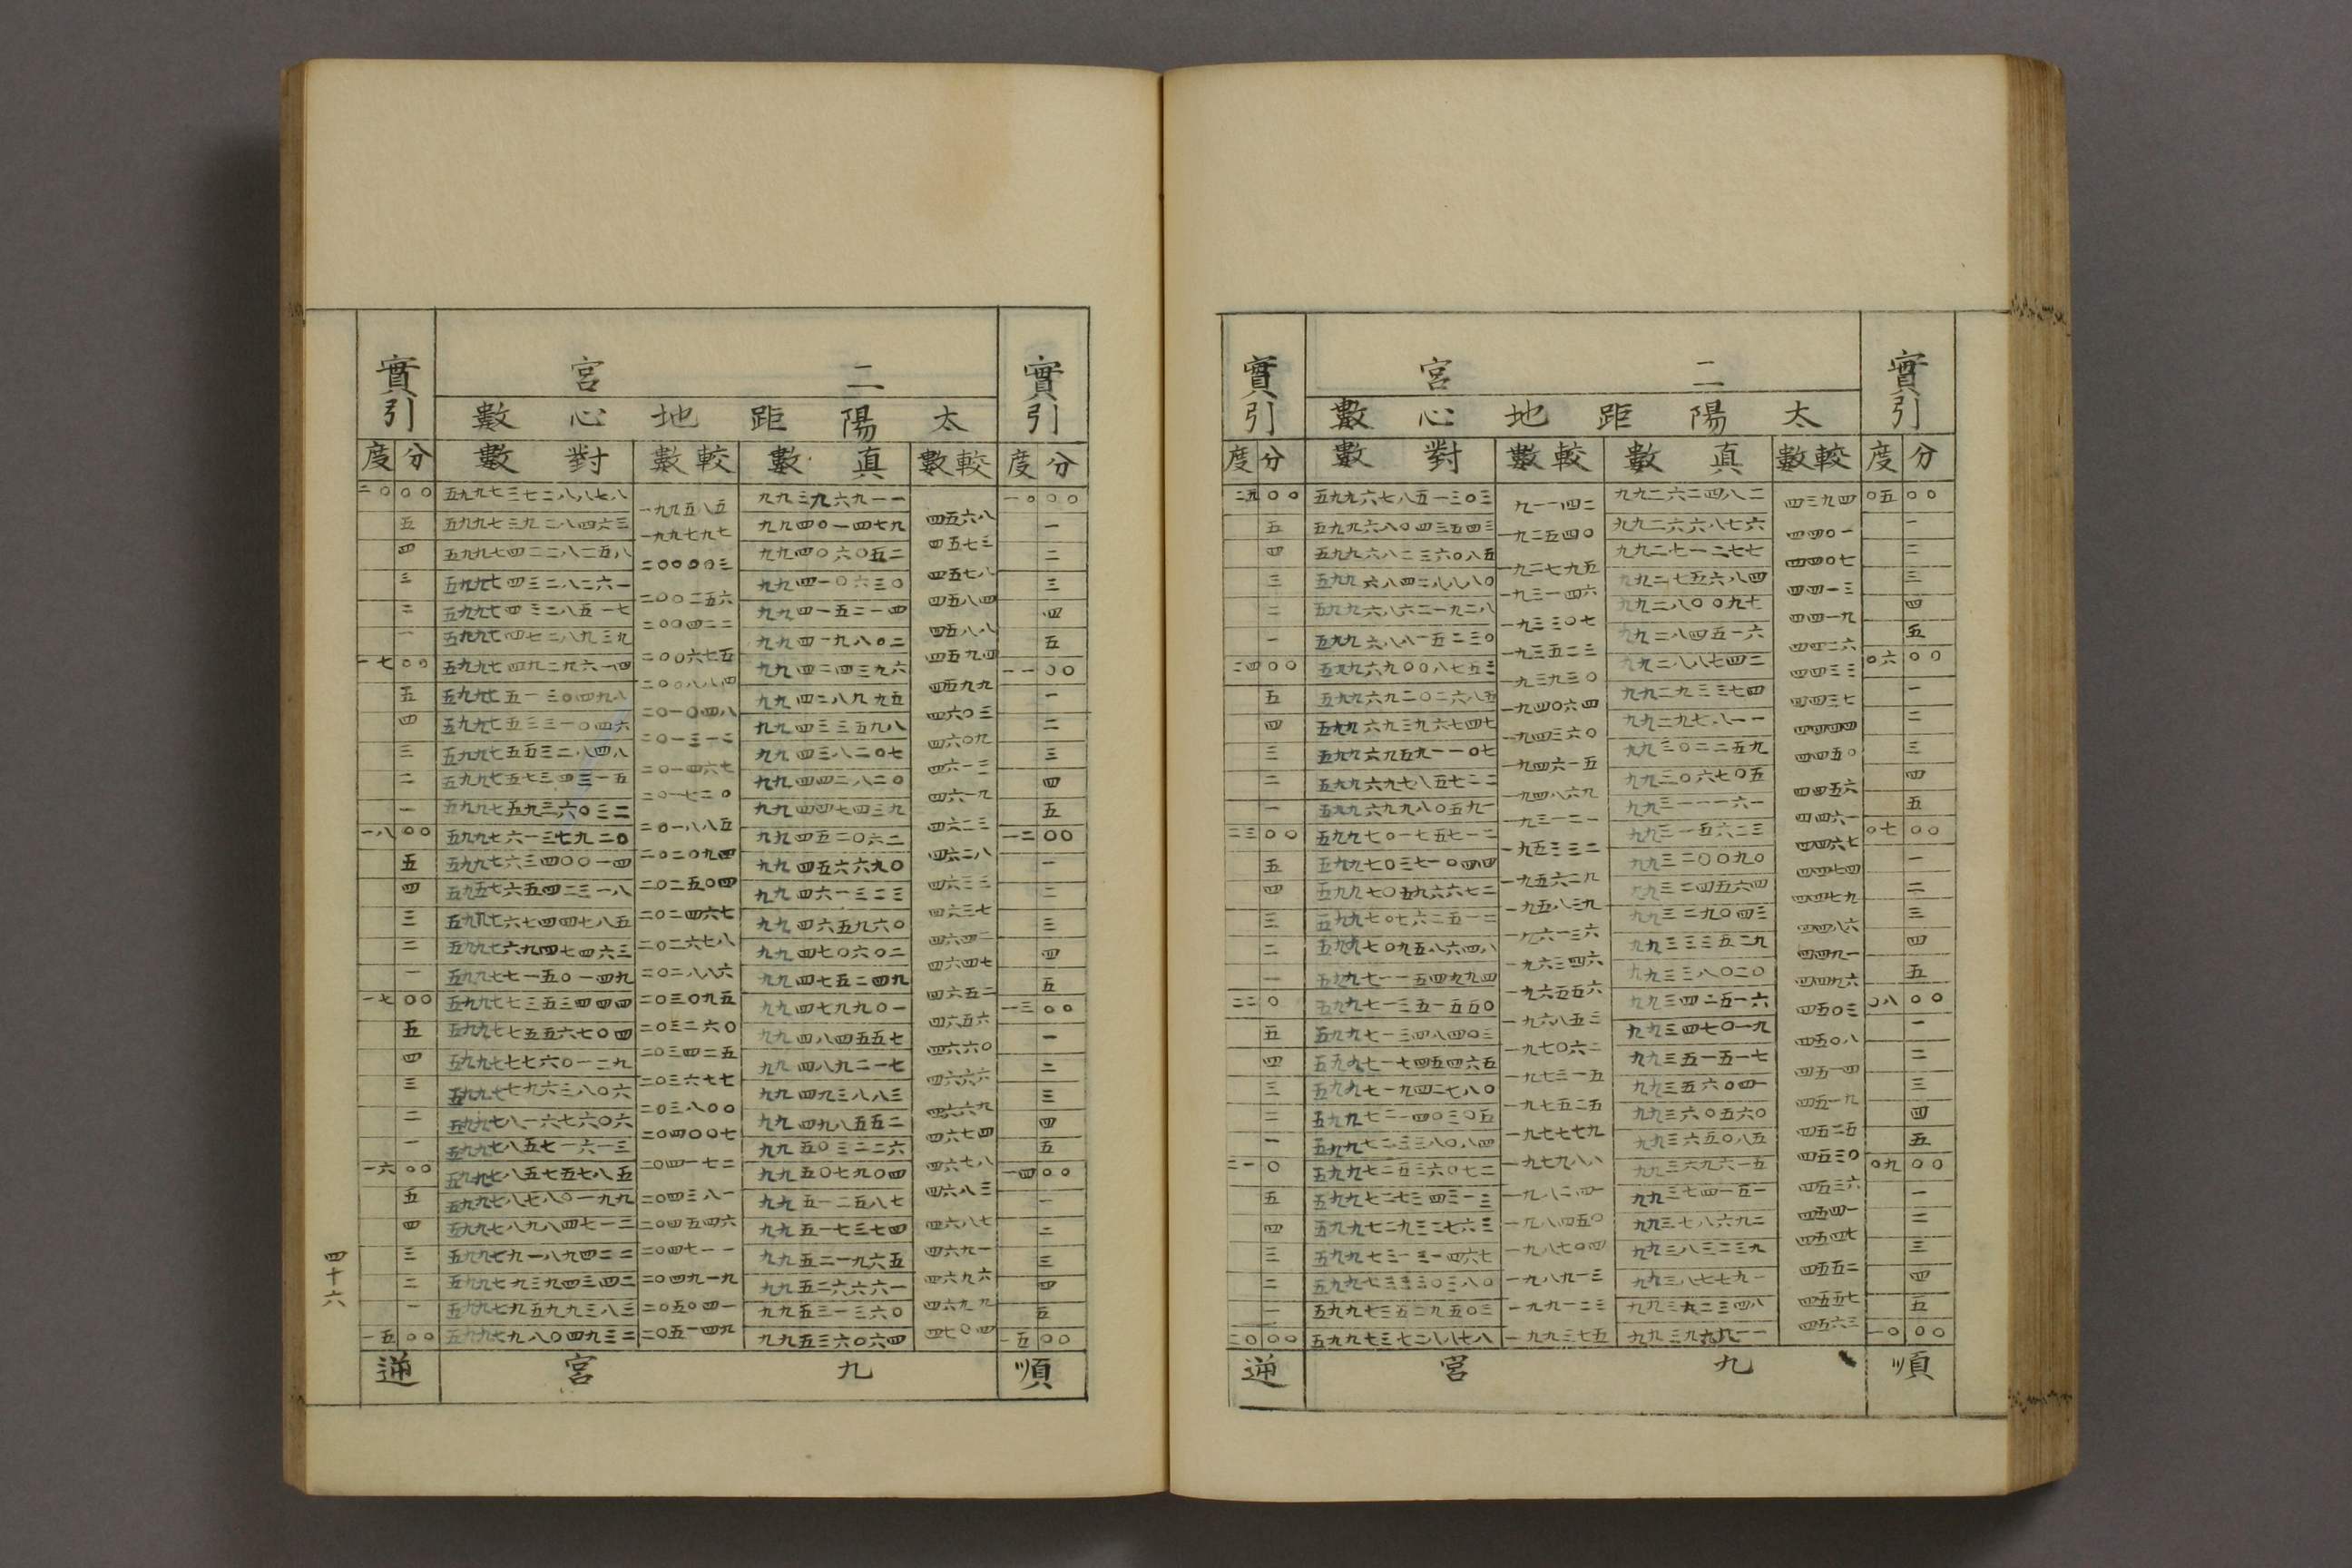 實引 二宮 實引
太陽距地心數
度 分 較數 真數 較數 對數 分 度
〇五 〇〇 四三九四 九九二六二四八二 九一一四二 五九九六七八五一三〇三 〇〇 二九
一 四四〇一 九九二六六八七六 一九二五四〇 五九九六八〇四三五四三 五
二 四四〇七 九九二七一二七七 一九二七九五 五九九六八二三六〇八五 四
三 四四一三 九九二七五六八四 一九三一四六 五九九六八四二八八八〇 三
四 四四一九 九九二八〇〇九七 一九三三〇七 五九九六八六二一九二八 二
五 四四二六 九九二八四五一六 一九三五二三 五九九六八八一五二三〇 一
〇六 〇〇 四四三三 九九二八八七四二 一九三九三〇 五九九六九〇〇八七五三 〇〇 二四
一 四四三七 九九二九三三七四 一九四〇六四 五九九六九二〇二六八五 五
二 四四四四 九九二九七八一一 一九四三六〇 五九九六九三九六七四七 四
三 四四五〇 九九三〇二二五九 一九四六一五 五九九六九五九一一〇七 三
四 四四五六 九九三〇六七〇五 一九四八六九 五九九六九七八五七二二 二
五 四四六一 九九三一一一六一 一九三一二一 五九九六九九八〇五九一 一
〇七 〇〇 四四六七 九九三一五六二三 一九五三三二 五九九七〇一七五七一二 〇〇 二三
一 四四七四 九九三二〇〇九〇 一九五六二九 五九九七〇三七一〇四四 五
二 四四七九 九九三二四五六四 一九五八三九 五九九七〇五九六六七二 四
三 四四八六 九九三二九〇四三 一九六一三六 五九九七〇七六二五一二 三
四 四四九一 九九三三三五二九 一九六三四六 五九九七〇九五八六四八 二
五 四四九六 九九三三八〇二〇 一九六五五六 五九九七一一五四九九四 一
〇八 〇〇 四五〇三 九九三四二五一六 一九六八五三 五九九七一三五一五五〇 〇 二二
一 四五〇八 九九三四七〇一九 一九七〇六二 五九九七一三四八四〇三 五
二 四五一四 九九三五一五一七 一九七三一五 五九九七一七四五四六五 四
三 四五一九 九九三五六〇四一 一九七五二五 五九九七一九四二七八〇 三
四 四五二五 九九三六〇五六〇 一九七七七九 五九九七二一四〇三〇五 二
五 四五三〇 九九三六五〇八五 一九七九八八 五九九七二三三八〇八四 一
〇九 〇〇 四五三六 九九三六九六一五 一九八二四一 五九九七二五三六〇七二 〇 二一
一 四五四一 九九三七四一五一 一九八四五〇 五九九七二七三四三一三 五
二 四五四七 九九三七八六九二 一九八七〇四 五九九七二九三二七六三 四
三 四五五二 九九三八三二三九 一九八九一三 五九九七三一三一四六七 三
四 四五五七 九九三八七七九一 一九九一二三 五九九七三三三〇三八〇 二
五 四五六三 九九三九二三四八 一九九三七五 五九九七三五二九五〇三 一
一〇 〇〇 九九三九六九一一 五九九七三七二八八七八 〇〇 二〇
順 九宮 逆
實引 二宮 實引
太陽距地心數
分 度 較數 真數 較數 對數 分 度
一〇 〇〇 四五六八 九九三九六九一一 一九九五八五 五九九七三七二八八七八 〇〇 二〇
一 四五七三 九九四〇一四七九 一九九七九七 五九九七三九二八四六三 五
二 四五七八 九九四〇六〇五二 二〇〇〇〇三 五九九七四二二八二五八 四
三 四五八四 九九四一〇六三〇 二〇〇二五六 五九九七四三二八二六一 三
四 四五八八 九九四一五二一四 二〇〇四二二 五九九七四三二八五一七 二
五 四五九四 九九四一九八〇二 二〇〇六七五 五九九七四七二八九三九 一
一一 〇〇 四五九九 九九四二四三九六 二〇〇八八四 五九九七四九二九六一四 〇〇 一七
一 四六〇三 九九四二八九九五 二〇一〇四八 五九九七五一三〇四九八 五
二 四六〇九 九九四三三五九八 二〇一三一二 五九九七五三三一〇四六 四
三 四六一三 九九四三八二〇七 二〇一四六七 五九九七五五三二八四八 三
四 四六一九 九九四四二八二〇 二〇一七二〇 五九九七五七三四三一五 二
五 四六二三 九九四四七四三九 二〇一八八五 五九九七五九三六〇三二 一
一二 〇〇 四六二八 九九四五二〇六二 二〇二〇九四 五九九七六一三七九二〇 〇〇 一八
一 四六三三 九九四五六六九〇 二〇二五〇四 五九九七六三四〇〇一四 五
二 四六三七 九九四六一三二三 二〇二四六七 五九五七六五四二三一八 四
三 四六四二 九九四六五九六〇 二〇二六七八 五九九七六七四四七八五 三
四 四六四七 九九四七〇六〇二 二〇二八八六 五九九七六九四七四六三 二
五 四六五二 九九四七五二四九 二〇三〇九五 五九九七七一五〇一四九 一
一三 〇〇 四六五六 九九四七九九〇一 二〇三二六〇 五九九七七三五三四四四 〇〇 一七
一 四六六〇 九九四八四五五七 二〇三四二五 五九九七七五五六七〇四 五
二 四六六六 九九四八九二一七 二〇三六七七 五九九七七七六〇一二九 四
三 四六六九 九九四九三八八三 二〇三八〇〇 五九九七七九六三八〇六 三
四 四六七四 九九四九八五五二 二〇四〇〇七 五九九七八一六七六〇六 二
五 四六七八 九九五〇三二二六 二〇四一七二 五九九七八五七一六一三 一
一四 〇〇 四六八三 九九五〇七九〇四 二〇四三八一 五九九七八五七五七八五 〇〇 一六
一 四六八七 九九五一二五八七 二〇四五四六 五九九七八七八〇一九九 五
二 四六九一 九九五一七三七四 二〇四七一一 五九九七八九八四七一二 四
三 四六九六 九九五二一九六五 二〇四九一九 五九九七九一八九四二二 三
四 四六九九 九九五二六六六一 二〇五〇四一 五九九七九三九四三四二 二
五 四七〇四 九九五三一三六〇 二〇五一四九 五九九七九五九九三八三 一
一五 〇〇 九九五三六〇六四 五九九七九八〇四九三二 〇〇 一五
順 九宮 逆
四十六